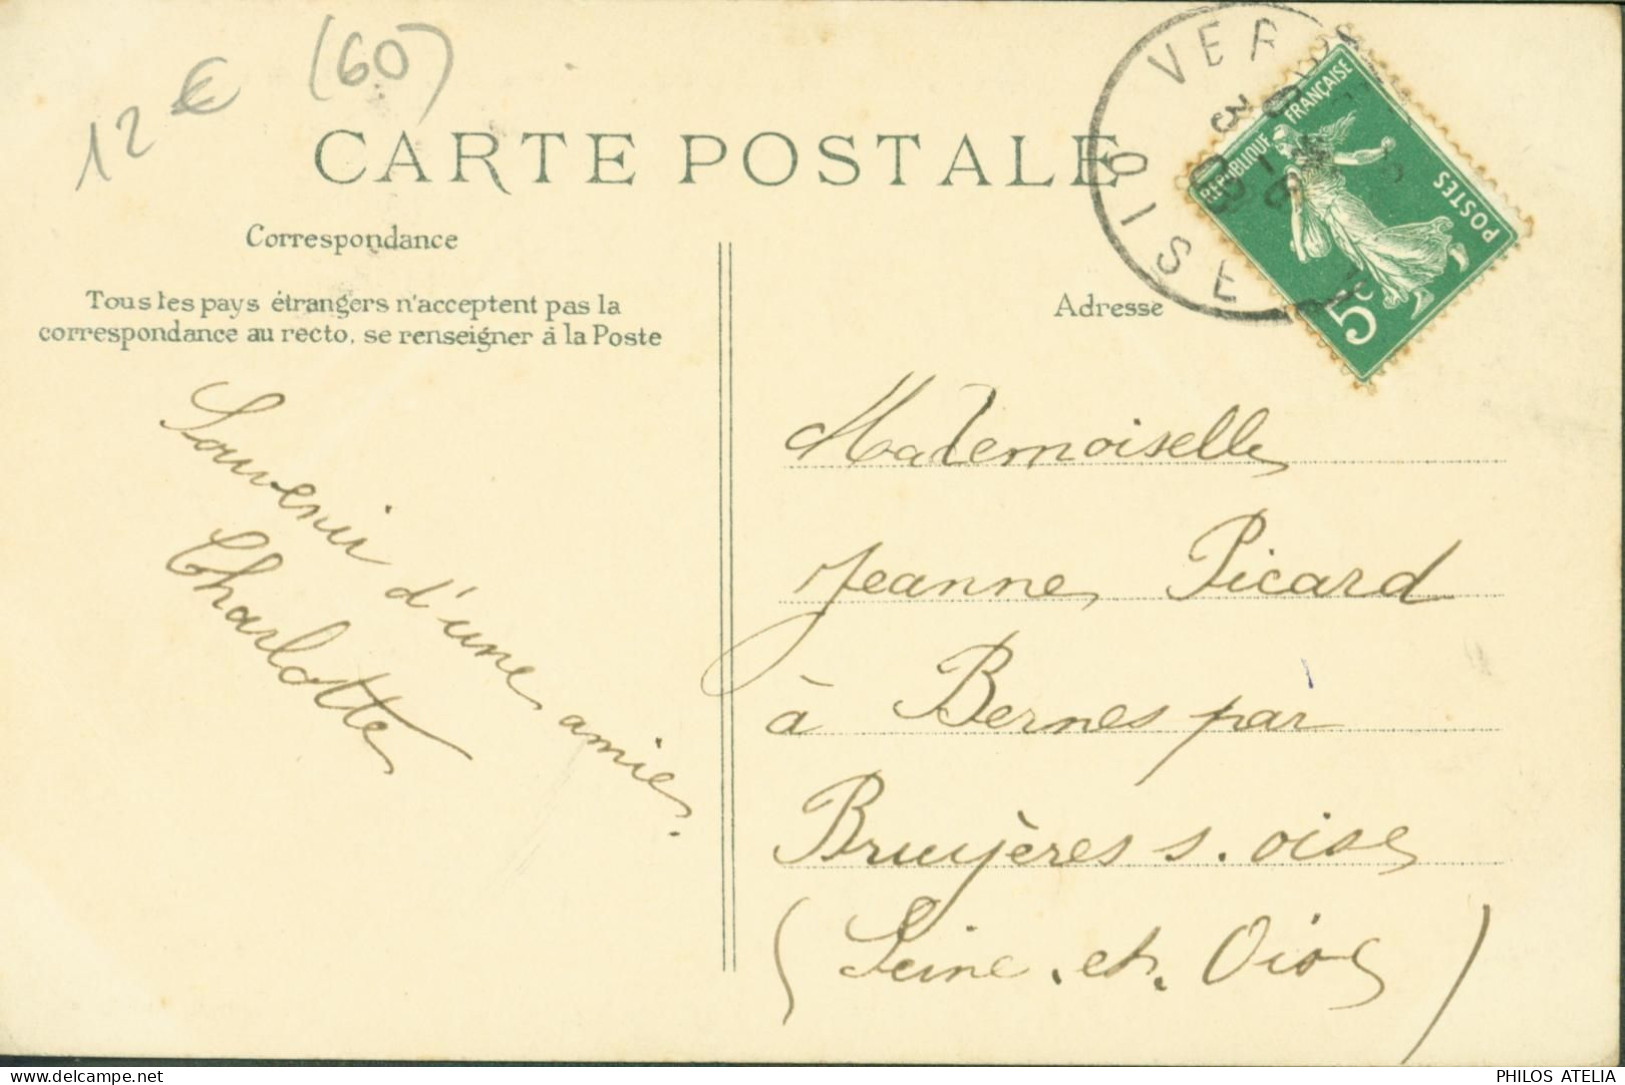 12 € (60)
CARTE POSTALE
Correspondance
Tous les pays étrangers n'acceptent pas la
correspondance au recto, se renseigner à la Poste
Souvenir d'une amie.
Charlotte
Adresse
VER
OISE
REPUBLIQUE FRANÇAISE
POSTES
5c
Mademoiselle
Jeanne Picard
à Bernes par
Bruyères s. oise
(Seine.et.Oise)
delcampe.net
PHILOS ATELIA